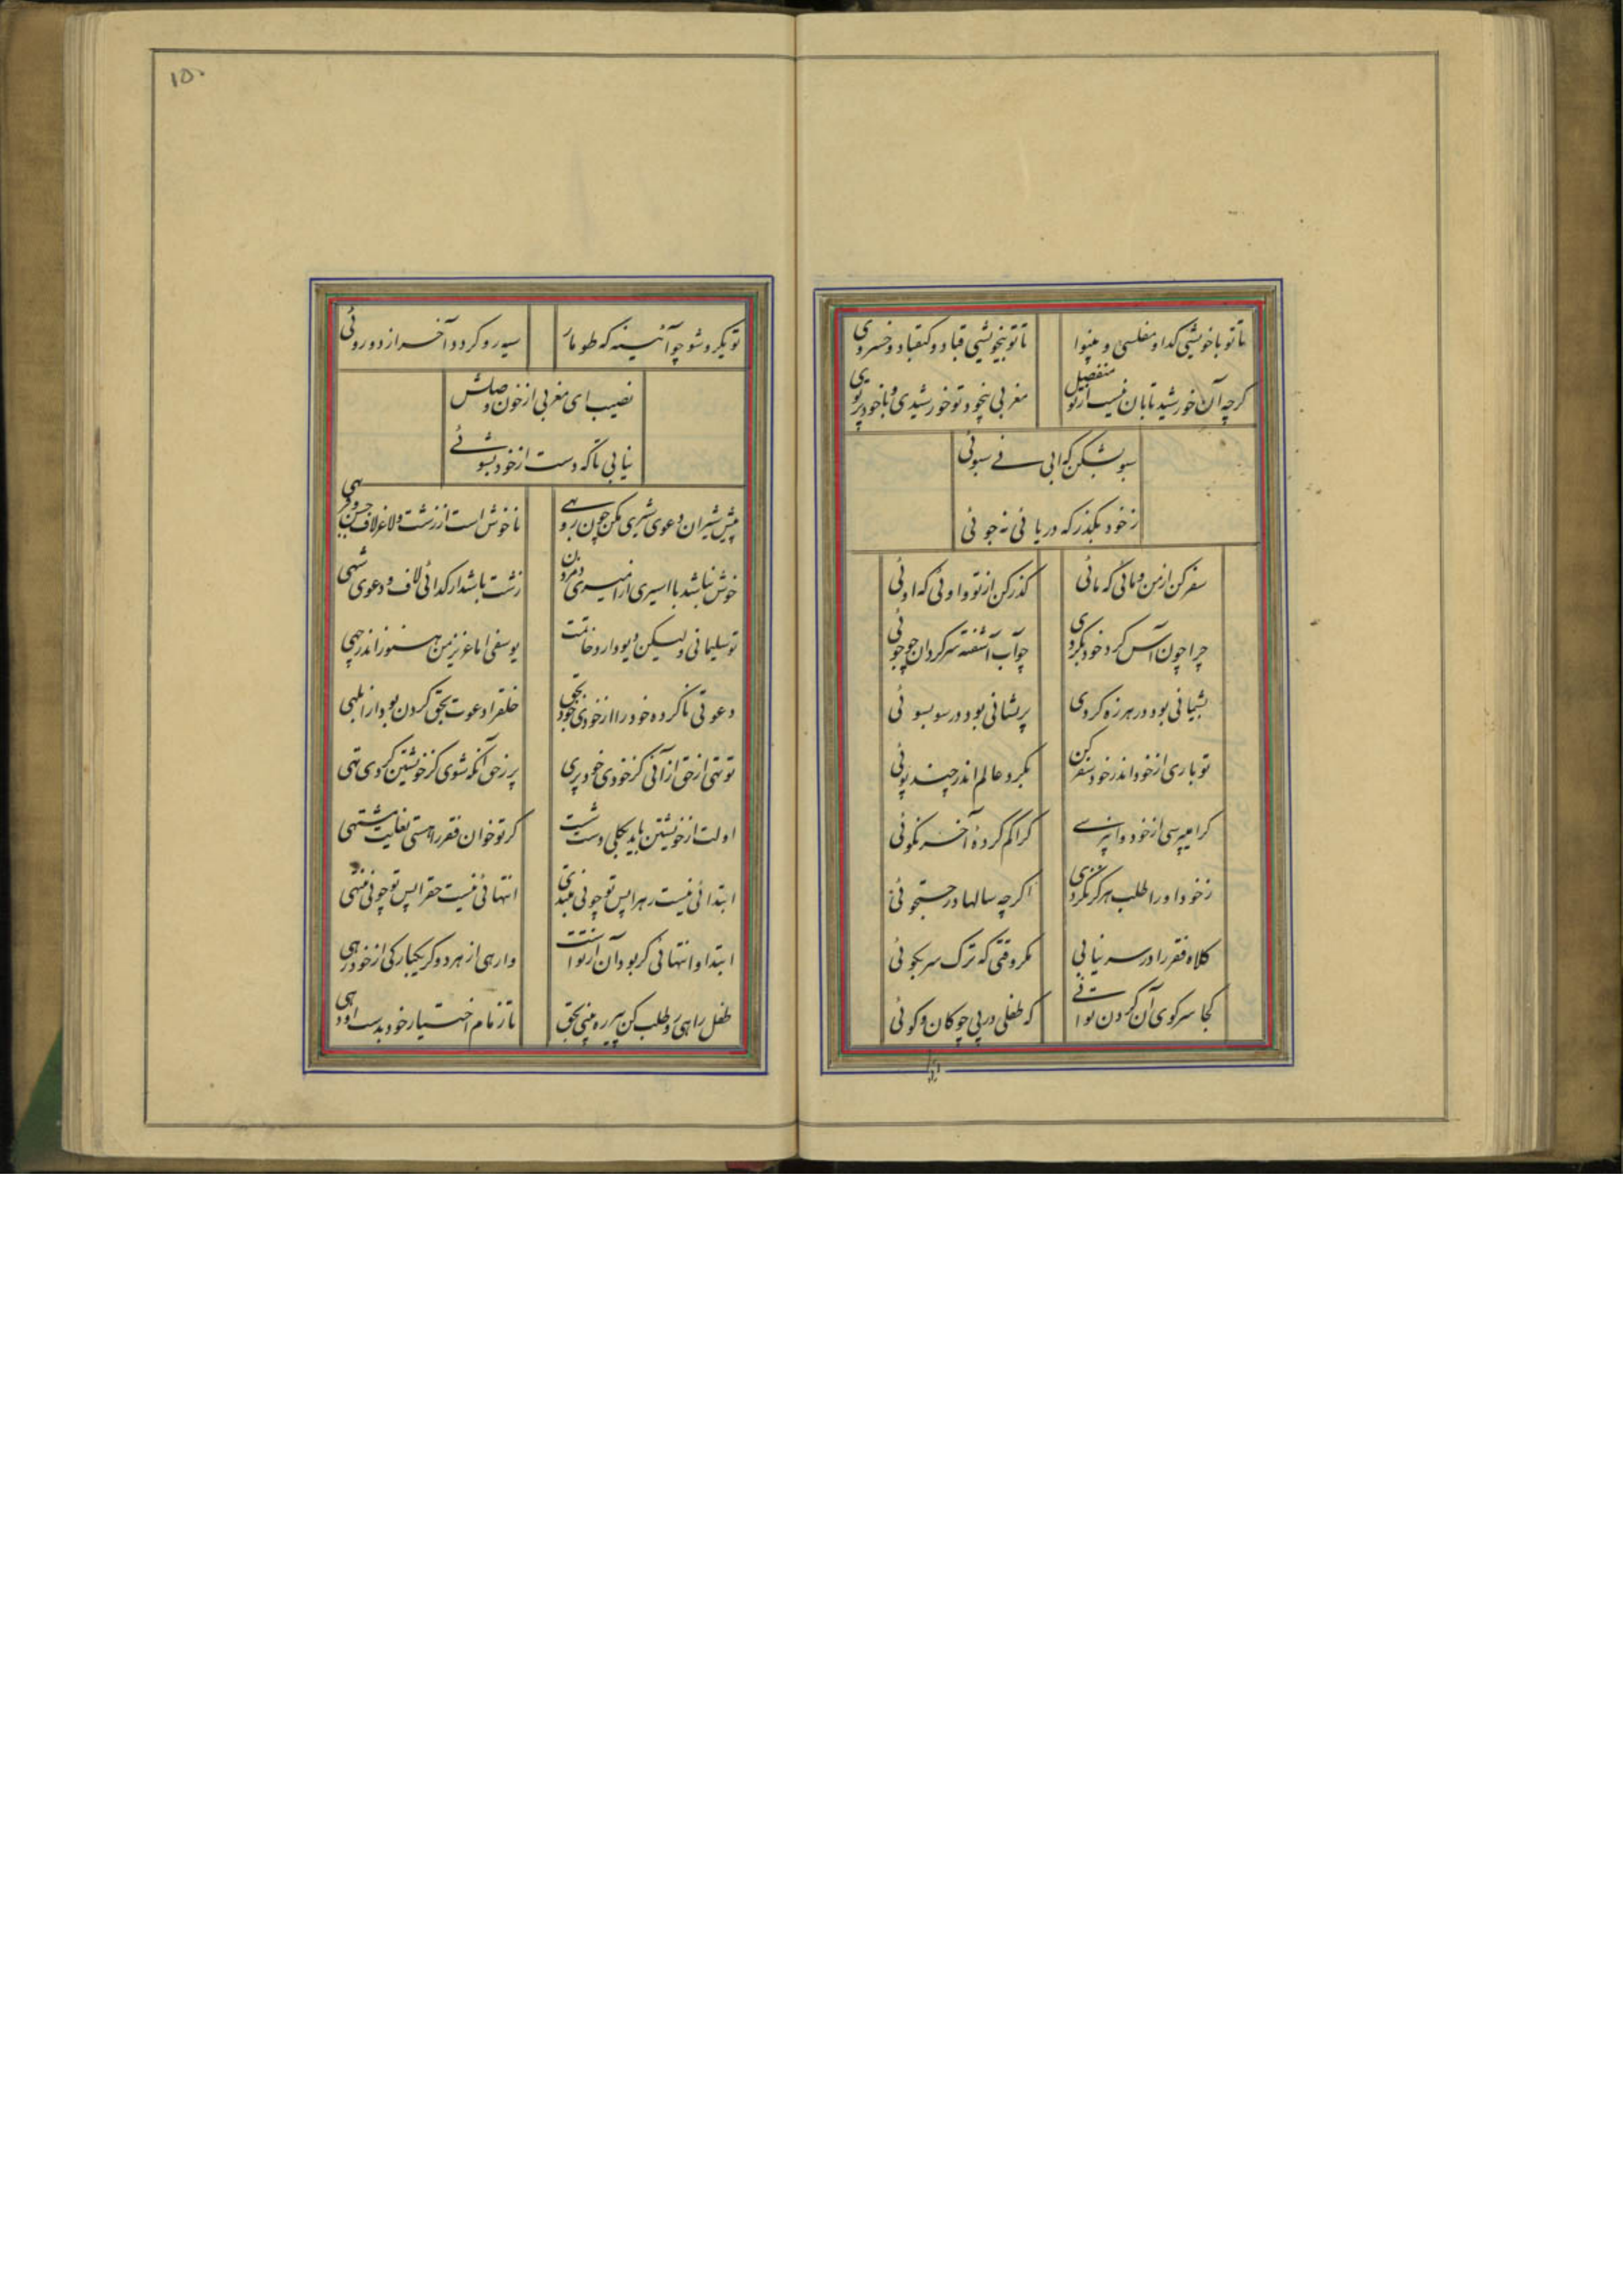 تا تو با خویشی گدا و مفلسی و بینوا تا تو بیخویشی قباد و کیقباد و خسروی
گرچه آن خورشید تابان نیست از تو منفصل مغربی بیخود تو خورشیدی و با خود پرتوی
سبو بشکن که ابی نے سبوئی
زخود بگذر که دریائی نه جوئی
سفر کن از من و مائی که مائی گذر کن از تو و اوئی که اوئی
چرا چون آس گرد خود نگردی چو آب آشفته سرگردان چو جوئی
پشیمانی بود در هرزه گردی پریشانی بود در سو بسوئی
تو باری از خود اندر خود سفر کن بگرد عالم اندر چند پوئی
کرا میپرسی از خود وا نپرسے کرا گم کردۀ آخر نگوئی
زخود او را طلب هرگز نکردی اگرچه سالها در جستجوئی
کلاه فقر را در سر نیابی مگر وقتی که ترک سر بگوئی
کجا سر گوی آن گردن توانے که طفلی در پی چوکان و گوئی
۱۵۰
تو یکرو شو چو آئینه که طومار سیه رو گردد آخر از دو روئی
نصیب ای مغربی از خون وصلش
نیابی تا که دست از خود بشوئے
پیش شیران دعوی شیری مکن چون روبهے ناخوش است از زشت و لاغر لاف حسن و فربهی
خوش نباشد با اسیری از امیری دم زدن زشت باشد از گدائی لاف و دعوی شهی
تو سلیمانی ولیکن دیو دارد خاتمت یوسفی اما عزیز من هنوز اندر چهی
دعوتی ناکرده خود را از خودی خود بحق خلق را دعوت بحق کردن بود از ابلهی
تو تهی از حق از آنی کز خودی خود پری پر زحق آنگه شوی کز خویشتن گردی تهی
اولت از خویشتن باید بکلی دست شست گر تو خوان فقر را هستی بغایت مشتهی
ابتدائی نیست ره را پس تو چونی مبتدی انتهائی نیست حق را پس تو چونی منتهی
ابتدا و انتهائی گر بود آن از تو است وارهی از هر دو گر یکبارگی از خود رهی
طفل راهی رو طلب کن پیر ره بینی بحق تا زمام اختیار خود بدست او دهی